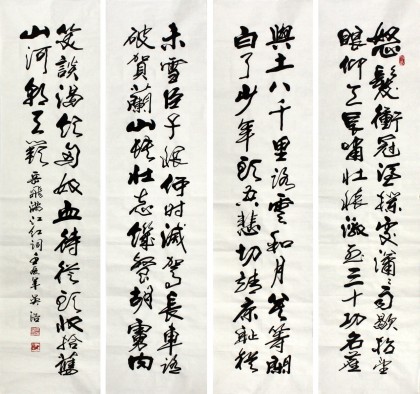 怒髮衝冠憑欄處瀟〻雨歇抬望
眼仰天長嘯壯懷激烈三十功名塵
與土八千里路雲和月莫等閑
白了少年頭空悲切靖康恥猶
未雪臣子恨何時滅駕長車踏
破賀蘭山缺壯志饑餐胡虜肉
笑談渴飲匈奴血待從頭收拾舊
山河朝天闕 岳飛滿江紅詞